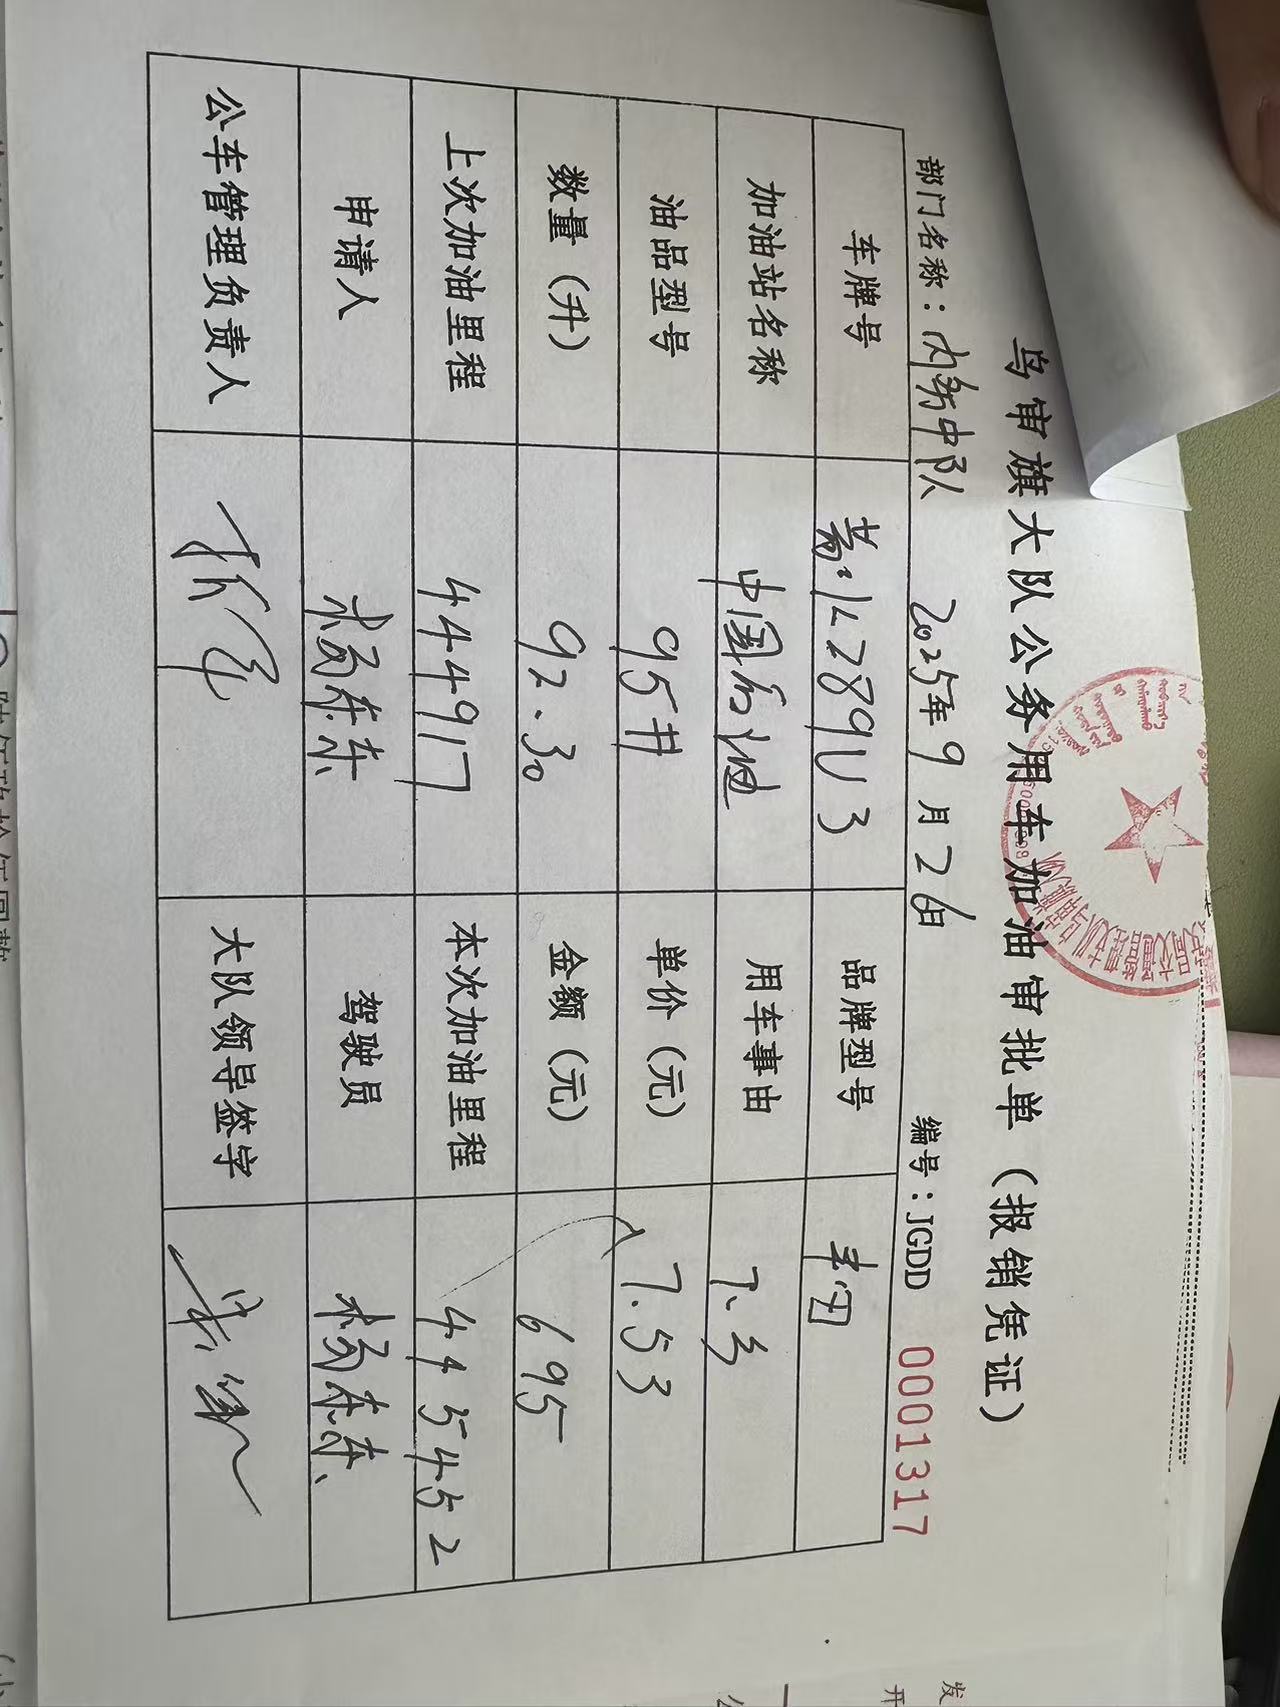 乌审旗大队公务用车加油审批单（报销凭证）
部门名称：内务中队 2025年9月26日 编号：JGDD 0001317
车牌号 蒙·K289U3 品牌型号 丰田
加油站名称 中国石油 用车事由
油品型号 95# 单价（元） 7.53
数量（升） 92.30 金额（元） 695
上次加油里程 44917 本次加油里程 445452
申请人 杨东东 驾驶员 杨东东
公车管理负责人 大队领导签字